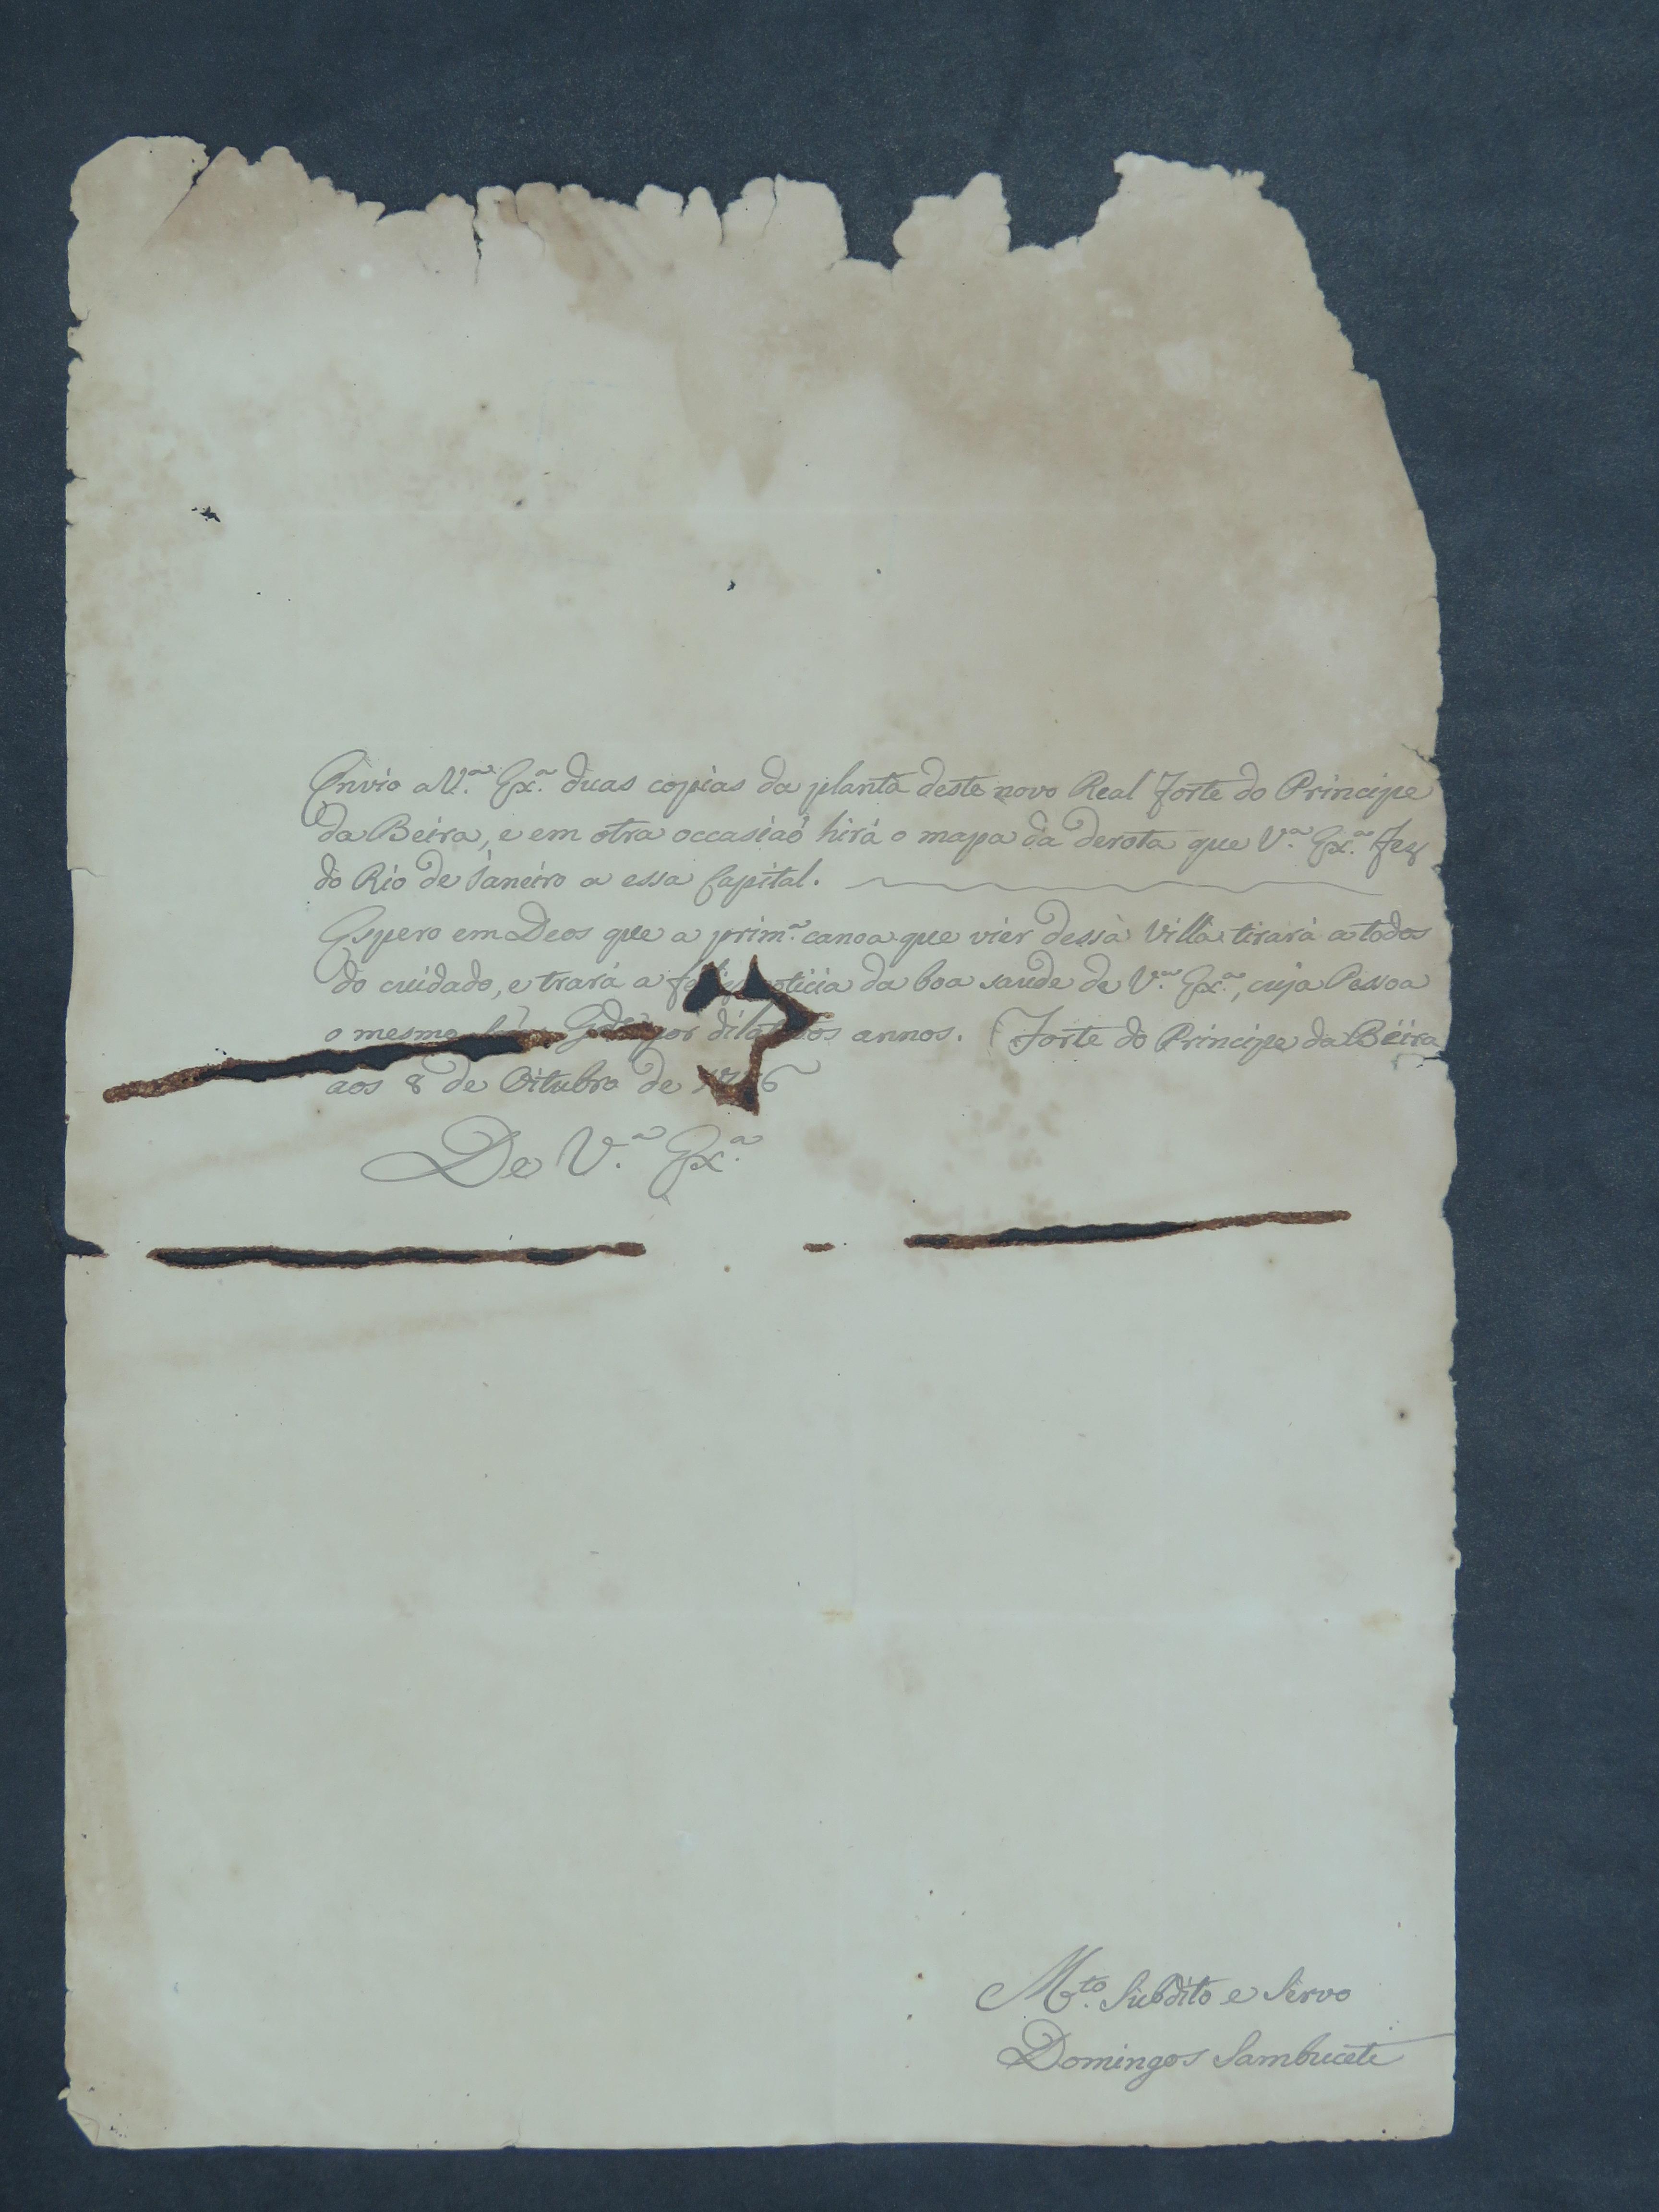 Envio a V.ª Ex.ª duas copias da planta deste novo Real Forte do Principe
da Beira, e em otra occasiaõ hirá o mapa da derota que V.ª Ex.ª Fez
do Rio de Janeiro a essa Capital.
Espero em Deos que a prim.ª canoa que vier dessa Villa tirará a todos
do cuidado, e trará a feliz noticia da boa saude de V.ª Ex.ª, cuja Pessoa
o mesmo por dilatados annos. Forte do Principe da Beira
aos 8 de Oitubro de 1776
De V.ª Ex.ª
M.to Subdito e Servo
Domingos Sambuceti